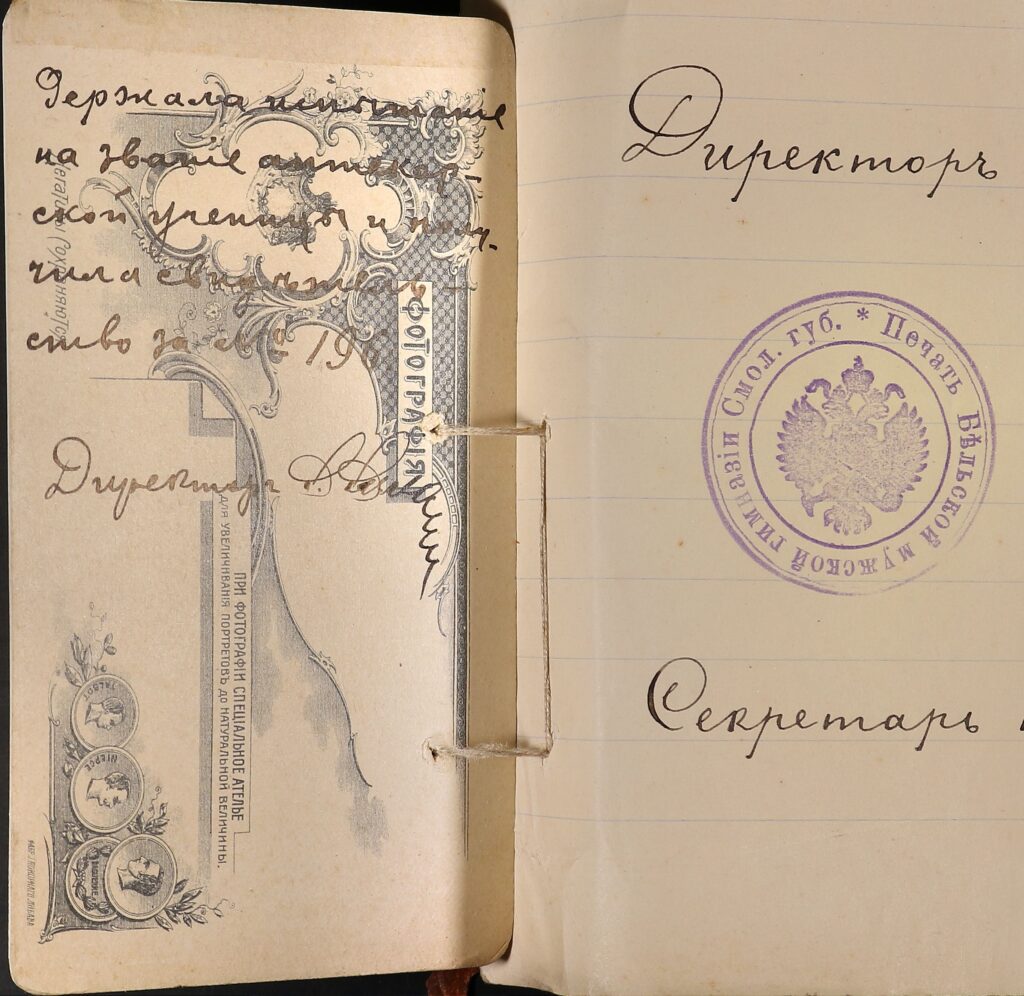 Держала испытанiе
на званiе аптекар-
ской ученицы и полу-
чила свидѣтель-
ство за № 196
Директоръ
ФОТОГРАФIЯ
ПРИ ФОТОГРАФIИ СПЕЦIАЛЬНОЕ АТЕЛЬЕ
ДЛЯ УВЕЛИЧИВАНIЯ ПОРТРЕТОВЪ ДО НАТУРАЛЬНОЙ ВЕЛИЧИНЫ.
TALBOT
NIEPCE
Директоръ
* Печать Бѣльской мужской гимназiи Смол. губ.
Секретарь